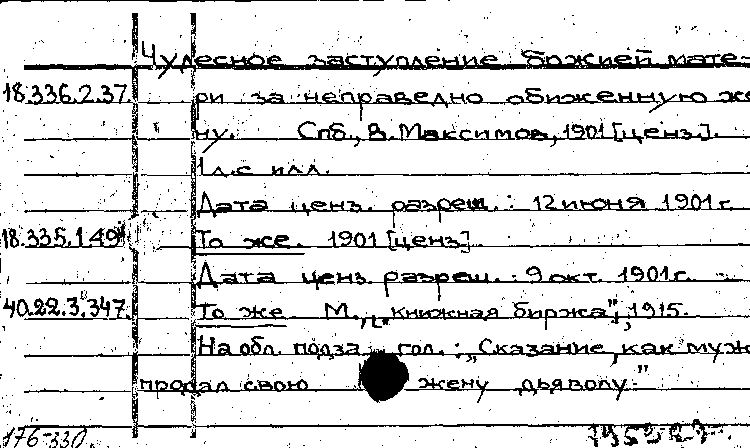 Чудесное заступление божией мате-
18.336.2.37. ри за неправедно обиженную же
ну. Спб., В. Максимов, 1901 [ценз.].
1 л. с илл.
Дата ценз. разреш.: 12 июня 1901 г.
18.335.1.49 То же. 1901 [ценз].
Дата ценз. разреш.: 9 окт. 1901 г.
40.22.3.347. То же. М., "книжная биржа", 1915.
На обл. подза гол.: „Сказание, как муж
продал свою жену дьяволу."
176-330.